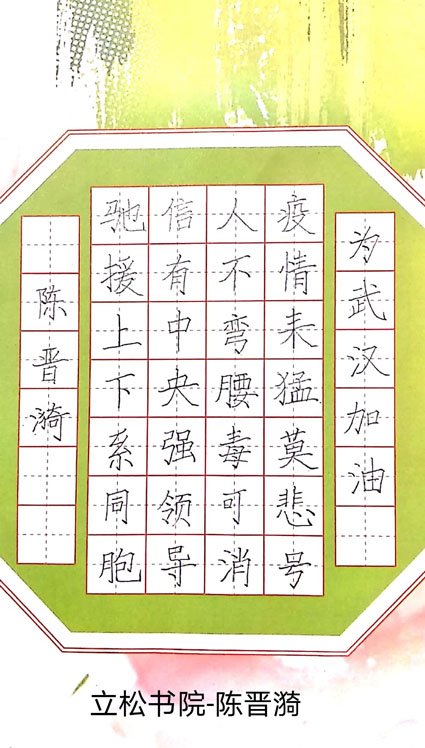 为武汉加油
疫情来猛莫悲号
人不弯腰毒可消
信有中央强领导
驰援上下系同胞
陈晋漪
立松书院-陈晋漪